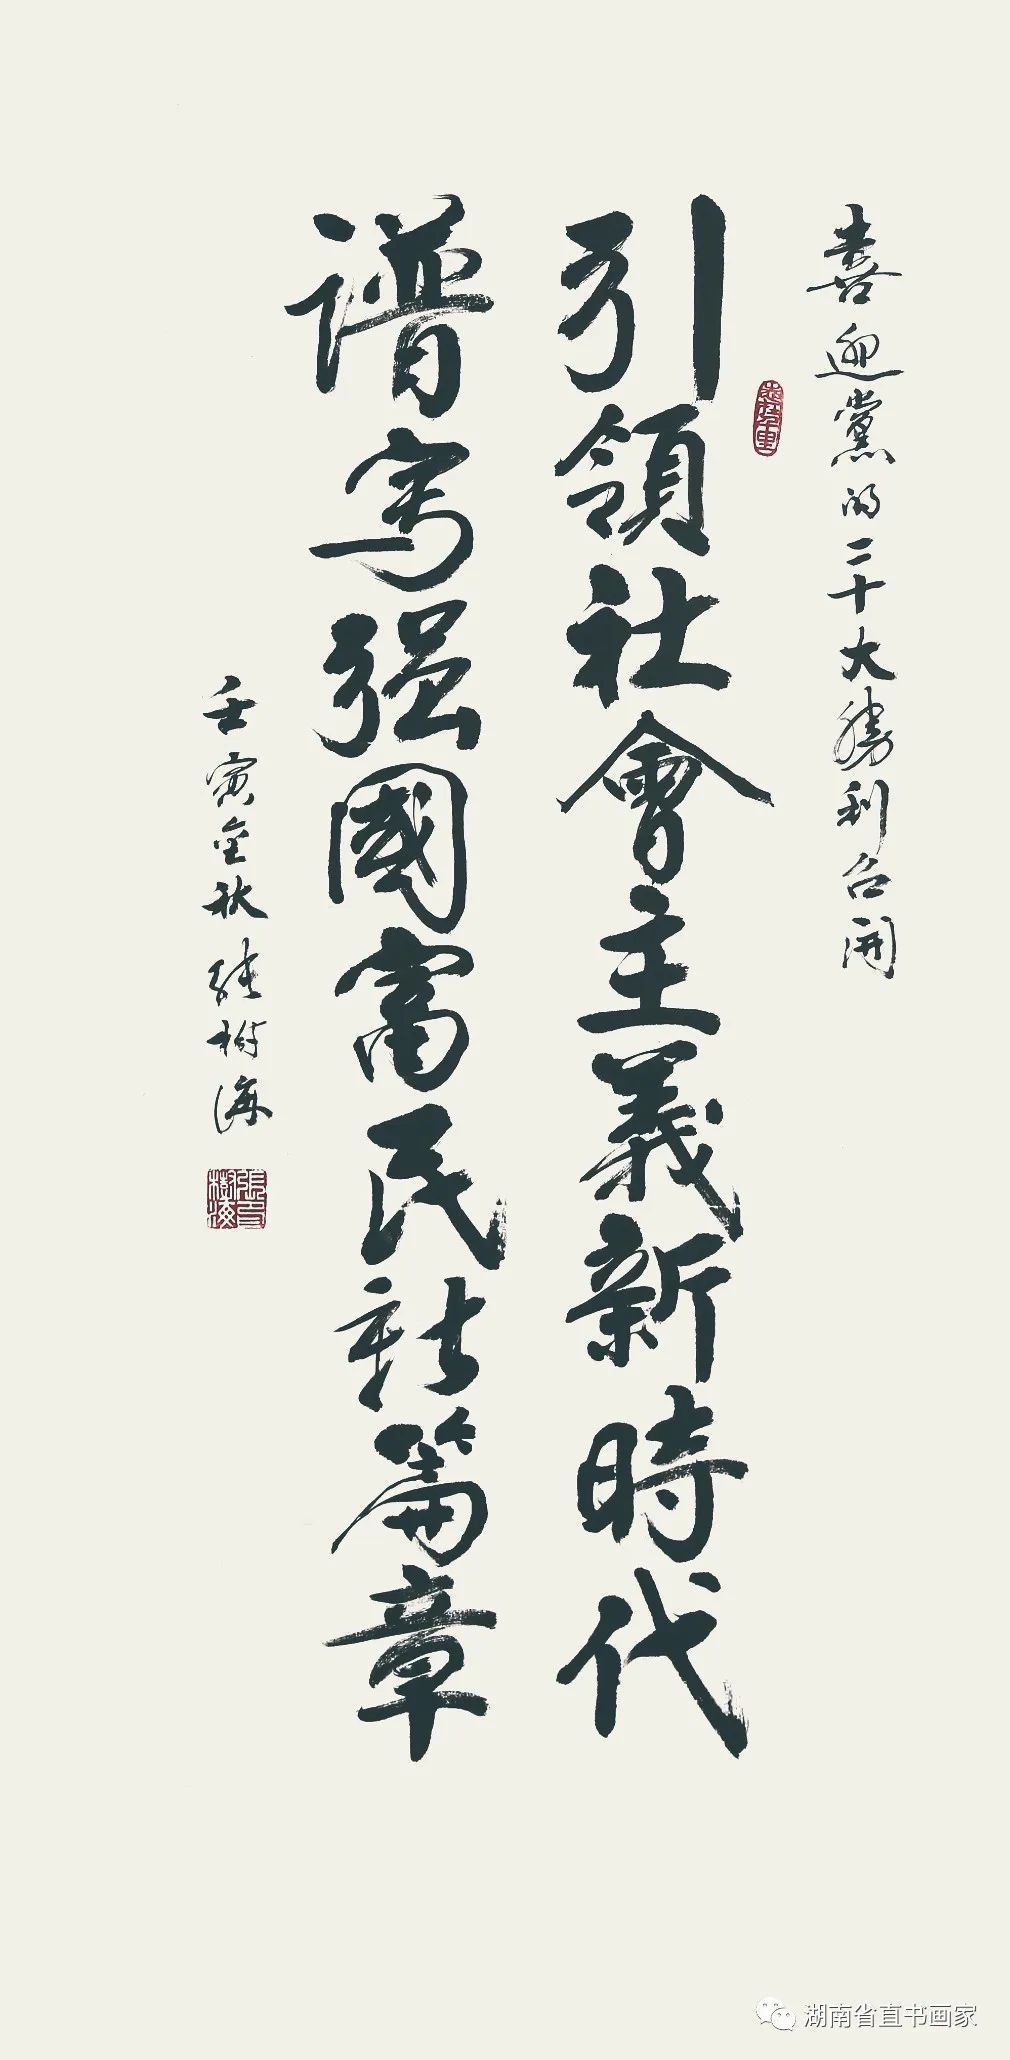 喜迎黨的二十大勝利召開
引領社會主義新時代
譜写强國富民新篇章
壬寅金秋張樹海
張樹海印
湖南省直书画家